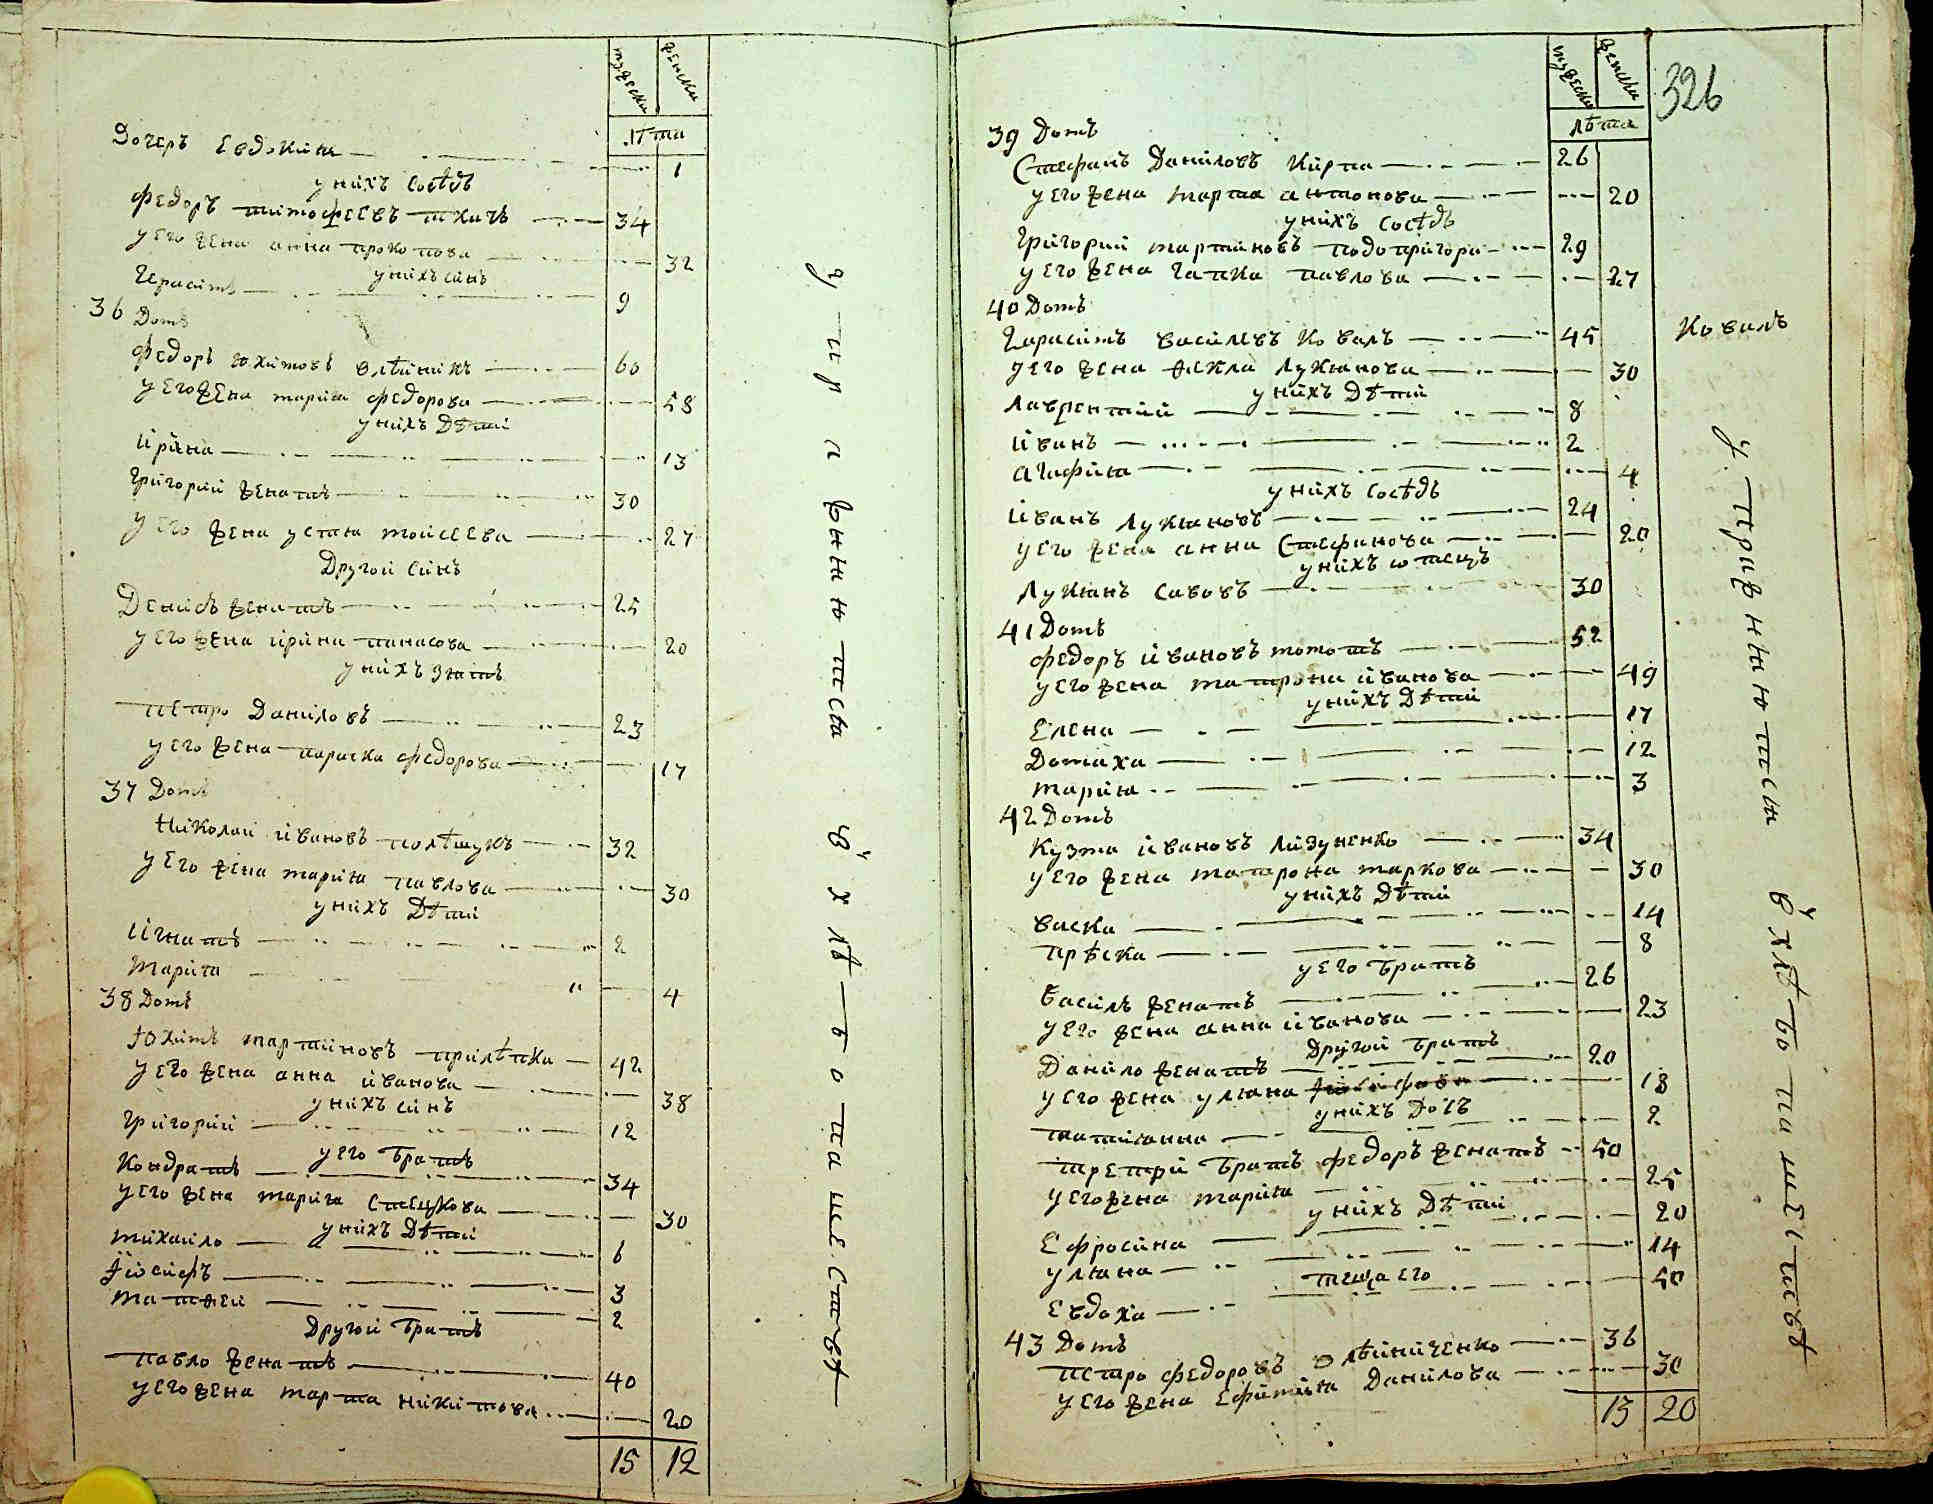 мужески
женски
лѣта
Дочеръ Евдокия 1
у нихъ сосѣдъ
Федоръ тимофеевъ ткачъ 34
у его жена анна прокопова 32
у нихъ синъ
Герасимъ 9
36 Домъ
Федоръ юхимовъ олѣйникъ 60
у его жена мария федорова 58
у нихъ Дѣти
Ирина 13
Григорий женатъ 30
у его жена устия моисеева 27
Другой синъ
Денисъ женатъ 25
у его жена ирина панасова 20
у нихъ зять
петро Даниловъ 23
у его жена параска федорова 17
37 Домъ
Николай ивановъ полѣшукъ 32
у его жена мария павлова 30
у нихъ Дѣти
Игнатъ 2
Мария 4
38 Домъ
Юхимъ мартиновъ прилѣпка 42
у его жена анна иванова 38
у нихъ синъ
Григорий 12
у его братъ
Кондратъ 34
у его жена мария стецкова 30
у нихъ Дѣти
михайло 6
Иосифъ 3
матфеи 2
Другой братъ
павло женатъ 40
у его жена марта никитова 20
15 12
упражняется в хлѣбопашествѣ
мужески
женски
326
лѣта
39 Домъ
Стефанъ Даниловъ Кирпа 26
у его жена марта антонова 20
у нихъ сосѣдъ
Григорий мартиновъ подопригора 29
у его жена гапка павлова 27
40 Домъ
Герасимъ василевъ Ковалъ 45
Ковалъ
у его жена фекла Лукянова 30
у нихъ Дѣти
Лаврентий 8
Иванъ 2
агафия 4
у нихъ сосѣдъ
Иванъ Лукяновъ 24
у его жена анна Стефанова 20
у нихъ отецъ
Лукянъ Савовъ 30
41 Домъ
Федоръ ивановъ момотъ 52
у его жена матрона иванова 49
у нихъ Дѣти
Елена 17
Домаха 12
мария 3
42 Домъ
Кузма ивановъ Лизуненко 34
у его жена матрона маркова 30
у нихъ Дѣти
васка 14
прѣска 8
у его братъ
василъ женатъ 26
у его жена анна иванова 23
Другой братъ
Данило женатъ 20
у его жена уляна 18
у нихъ Дочъ
татиянна 2
третрй братъ федоръ женатъ 50
у его жена мария 25
у нихъ Дѣти
Ефросина 20
уляна 14
теща его
Евдоха 50
43 Домъ
петро федоровъ олѣйниченко 36
у его жена Ефимия Данилова 30
13 20
упражняется в хлѣбопашествѣ